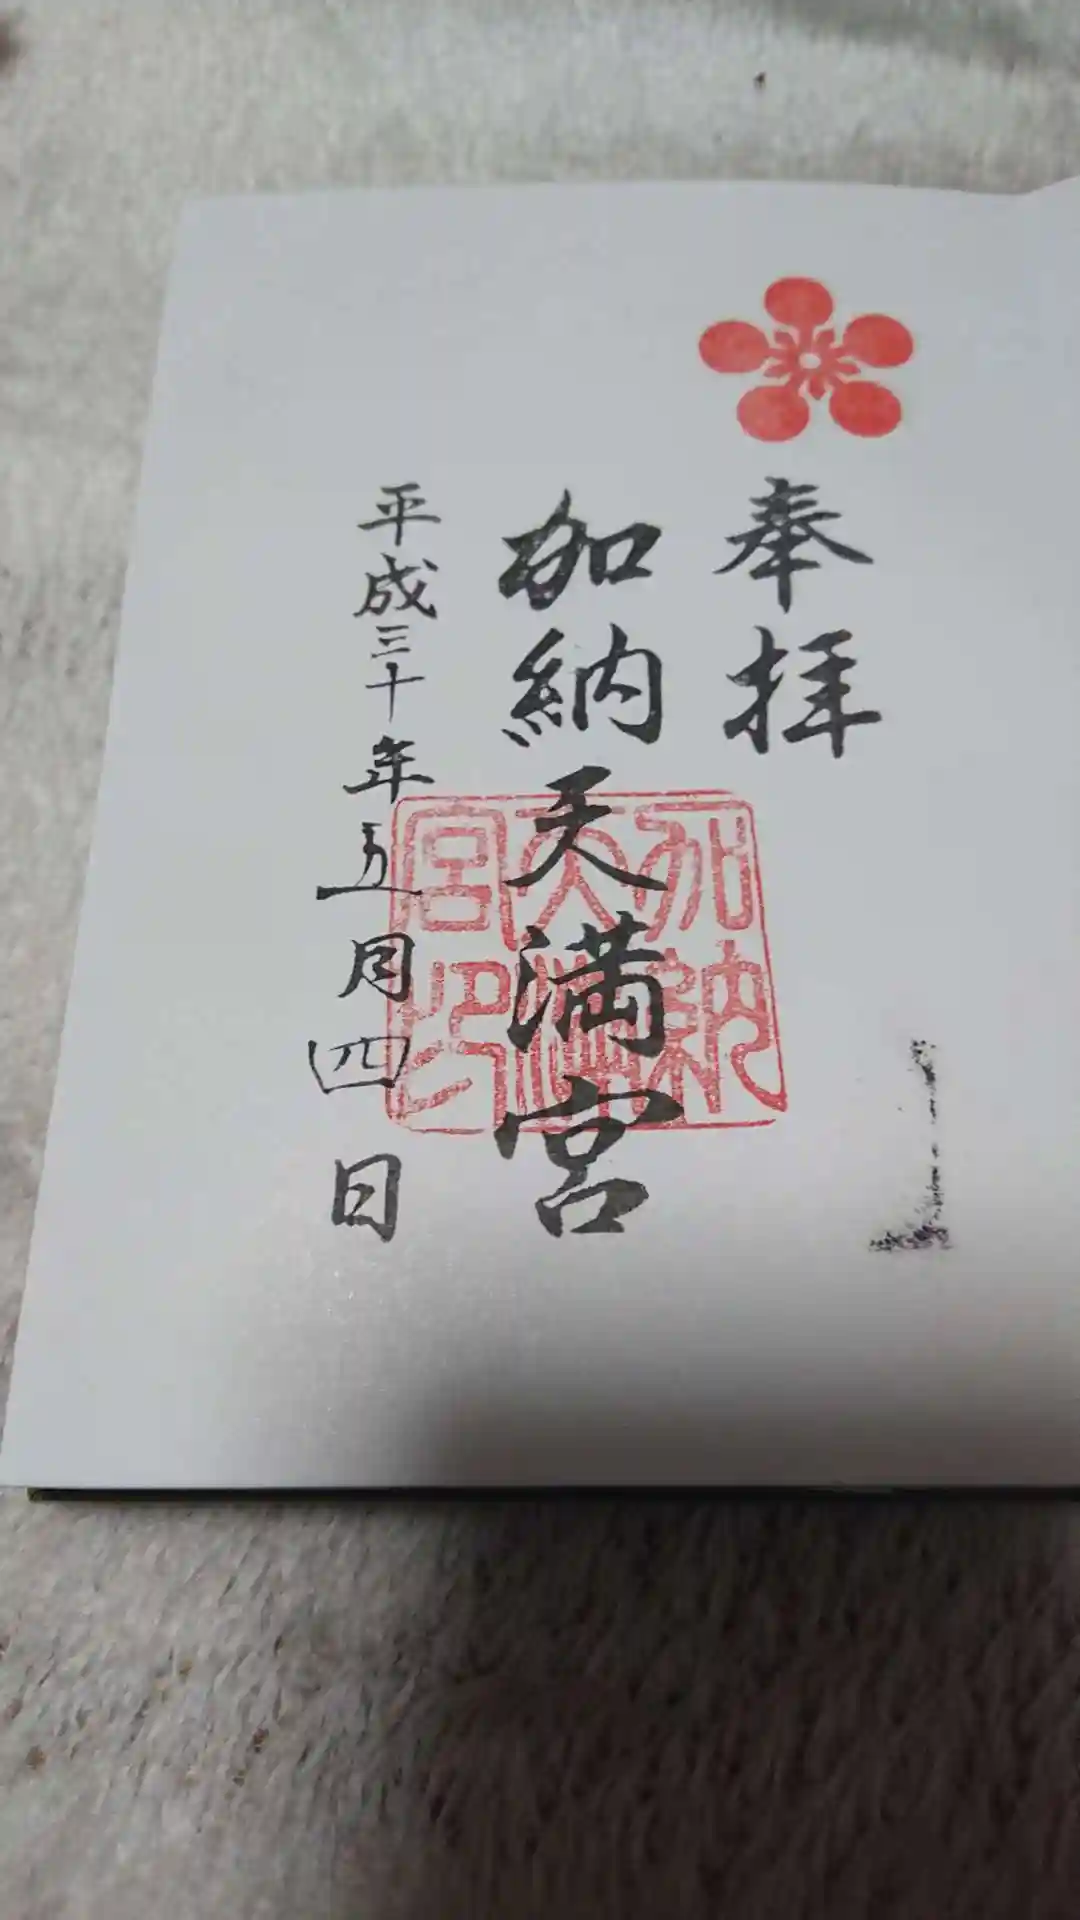 奉拝
加納天満宮
平成三十年五月四日
加納
天満
宮印